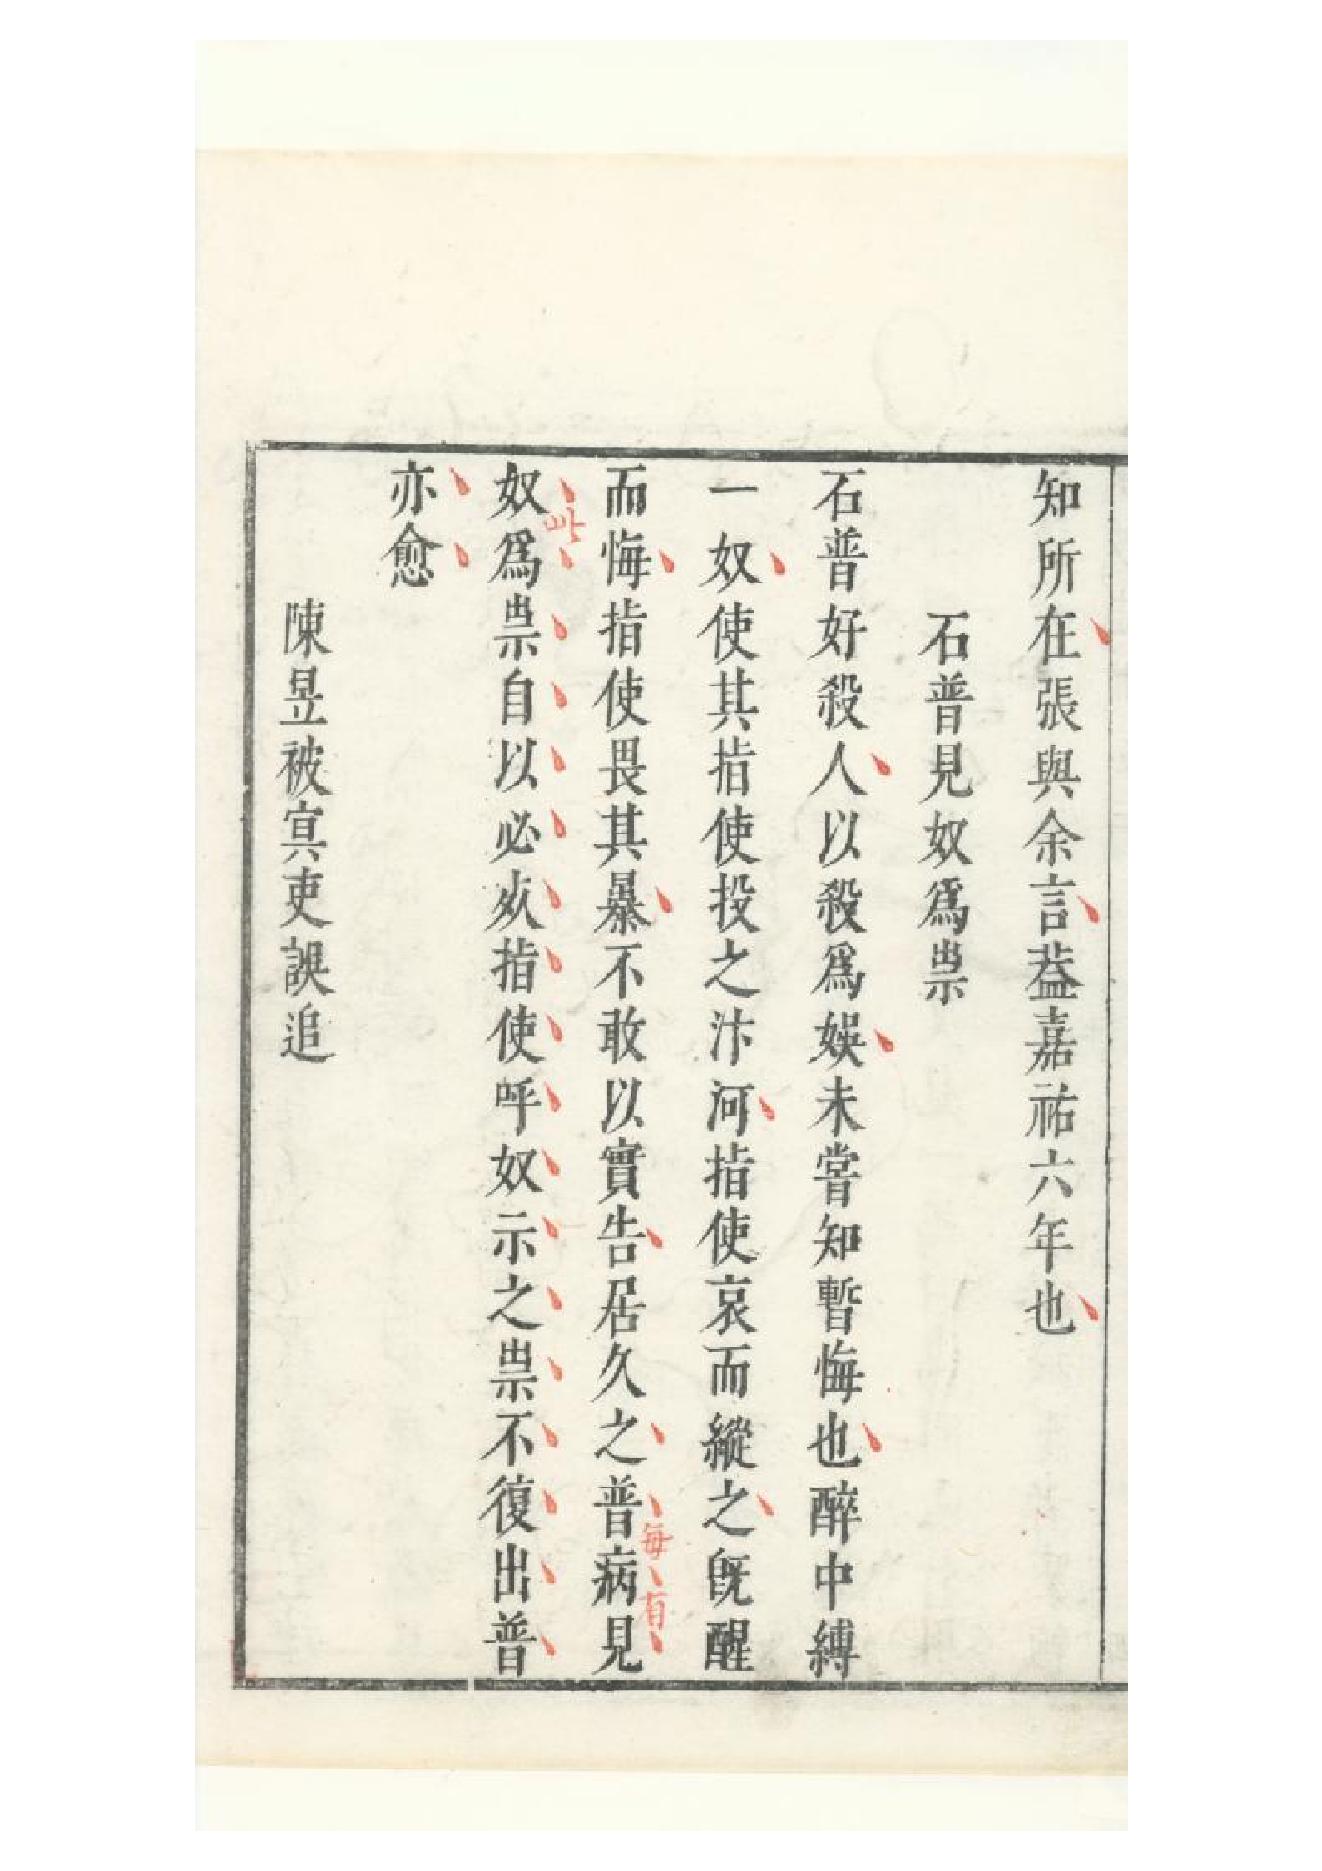 知所在張與余言葢嘉祐六年也
石普見奴爲祟
石普好殺人以殺爲娛未嘗知暫悔也醉中縛
一奴使其指使投之汴河指使哀而縱之旣醒
而悔指使畏其暴不敢以實告居久之普病見
每有
奴爲祟自以必死指使呼奴示之祟不復出普
此
亦愈
陳昱被冥吏誤追